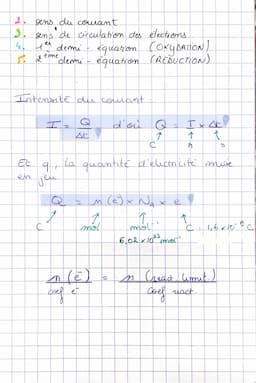 2. sens du courant
3. sens de circulation des électrons
4. 1ère demi - équation (OXYDATION)
5. 2ème demi - équation (RÉDUCTION)
Intensité du courant
I = Q / Δt d'où Q = I × Δt
C A s
Et q, la quantité d'électricité mise
en jeu
Q = n(e⁻) × NA × e
C mol mol⁻¹ C
6,02 × 10²³ mol⁻¹
n(e⁻) / coef e⁻ = n (réact limit.) / coef réact.